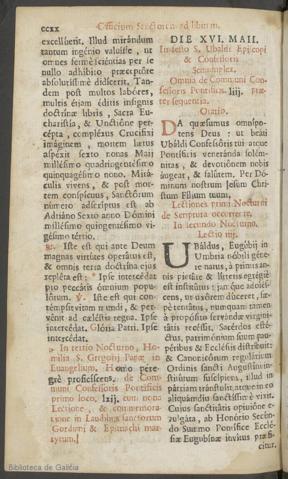 CCXX Officium Sanctorum ad libitum.
excelluerit. Illud mirándum
tantum ingénio valuisse, ut
omnes ferme sciéntias per se
nullo adhíbito præceptóre
absolutíssimè didícerit. Tan-
dem post multos labóres,
multis étiam éditis insígnis
doctrínæ libris, Sacra Eu-
charístia, & Unctióne per-
cépta, compléxus Crucifíxi
imáginem, moitem lætus
aspéxit sexto nonas Maij
millésimo quadringentésimo
quinquagésimo nono. Mirá-
culis vivens, & post mor-
tem conspícuus, Sanctórum
número adscríptus est ab
Adriáno Sexto anno Dómini
millésimo quingentésimo vi-
gésimo tértio.
℟. Iste est qui ante Deum
magnas virtútes operátus est,
& omnis terra doctrína ejus
repléta est: * Ipse intercédat
pro peccátis ómnium popu-
lórum. ℣. Iste est qui con-
témpsit vitam mundi, & per-
vénit ad cæléstia regna. Ipse
intercédat. Glória Patri. Ipse
intercédat.
In tertio Nocturno, Ho-
milia S. Gregorij Papæ in
Euangelium, Homo pere-
grè proficíscens, de Com-
muni Confessoris Pontificis
primo loco, lxij. cum nona
Lectione, & commemora-
tione in Laudibus sanctorum
Gordiani & Epimachi mar-
tyrum.
DIE XVI. MAII.
In festo S. Ubaldi Episcopi
& Confessoris
Semiduplex.
Omnia de Communi Con-
fessoris Pontificis, liij. præ-
ter sequentia.
Oratio.
DA quæsumus omnípo-
tens Deus: ut beáti
Ubáldi Confessóris tui atque
Pontíficis veneránda solém-
nitas, & devotiónem nobis
áugeat, & salútem. Per Dó-
minum nostrum Jesum Chri-
stum Fílium tuum.
Lectiones primi Nocturni
de Scriptura occurrente.
In secundo Nocturno.
Lectio iiij.
UBáldus, Eugúbij in
Umbria nóbili géne-
re natus, à primis an-
nis pietáte & lítteris egrégiè
est institútus: jam que adoles-
cens, ut uxórem dúceret, sæ-
pè tentátus, nunquam tamen
à propósito servándæ virgini-
tátis recéssit. Sacérdos effé-
ctus, patrimónium suum pau-
péribus & Ecclésiis distríbuit:
& Canonicórum regulárium
Ordinis sancti Augustíni in-
stitútum suscípiens, illud in
pátriam tránstulit, atque in eo
aliquámdiu sanctíssimè vixit.
Cujus sanctitátis opinióne e-
vulgáta, ab Honório Secún-
do Summo Pontífice Ecclé-
siæ Eugubínæ invítus præfí-
citur,
Biblioteca de Galicia